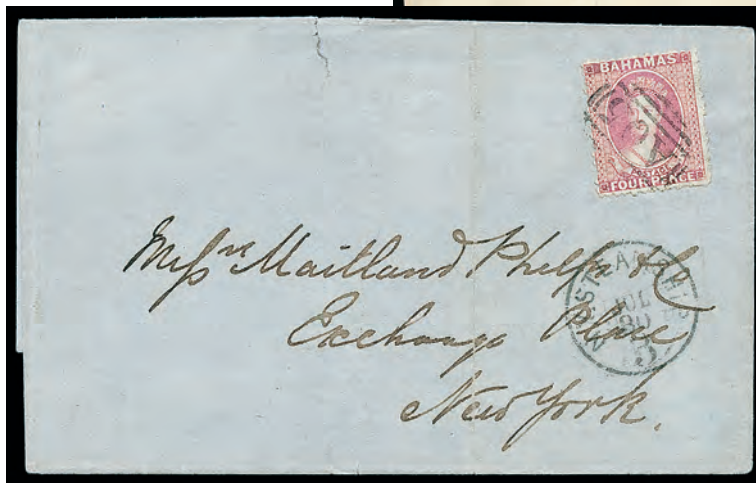 BAHAMAS
POSTAGE
FOUR PENCE
Messrs Maitland Phelps & Co
Exchange Place
New York.
N.Y. STEAMSHIP
JUL
30
5